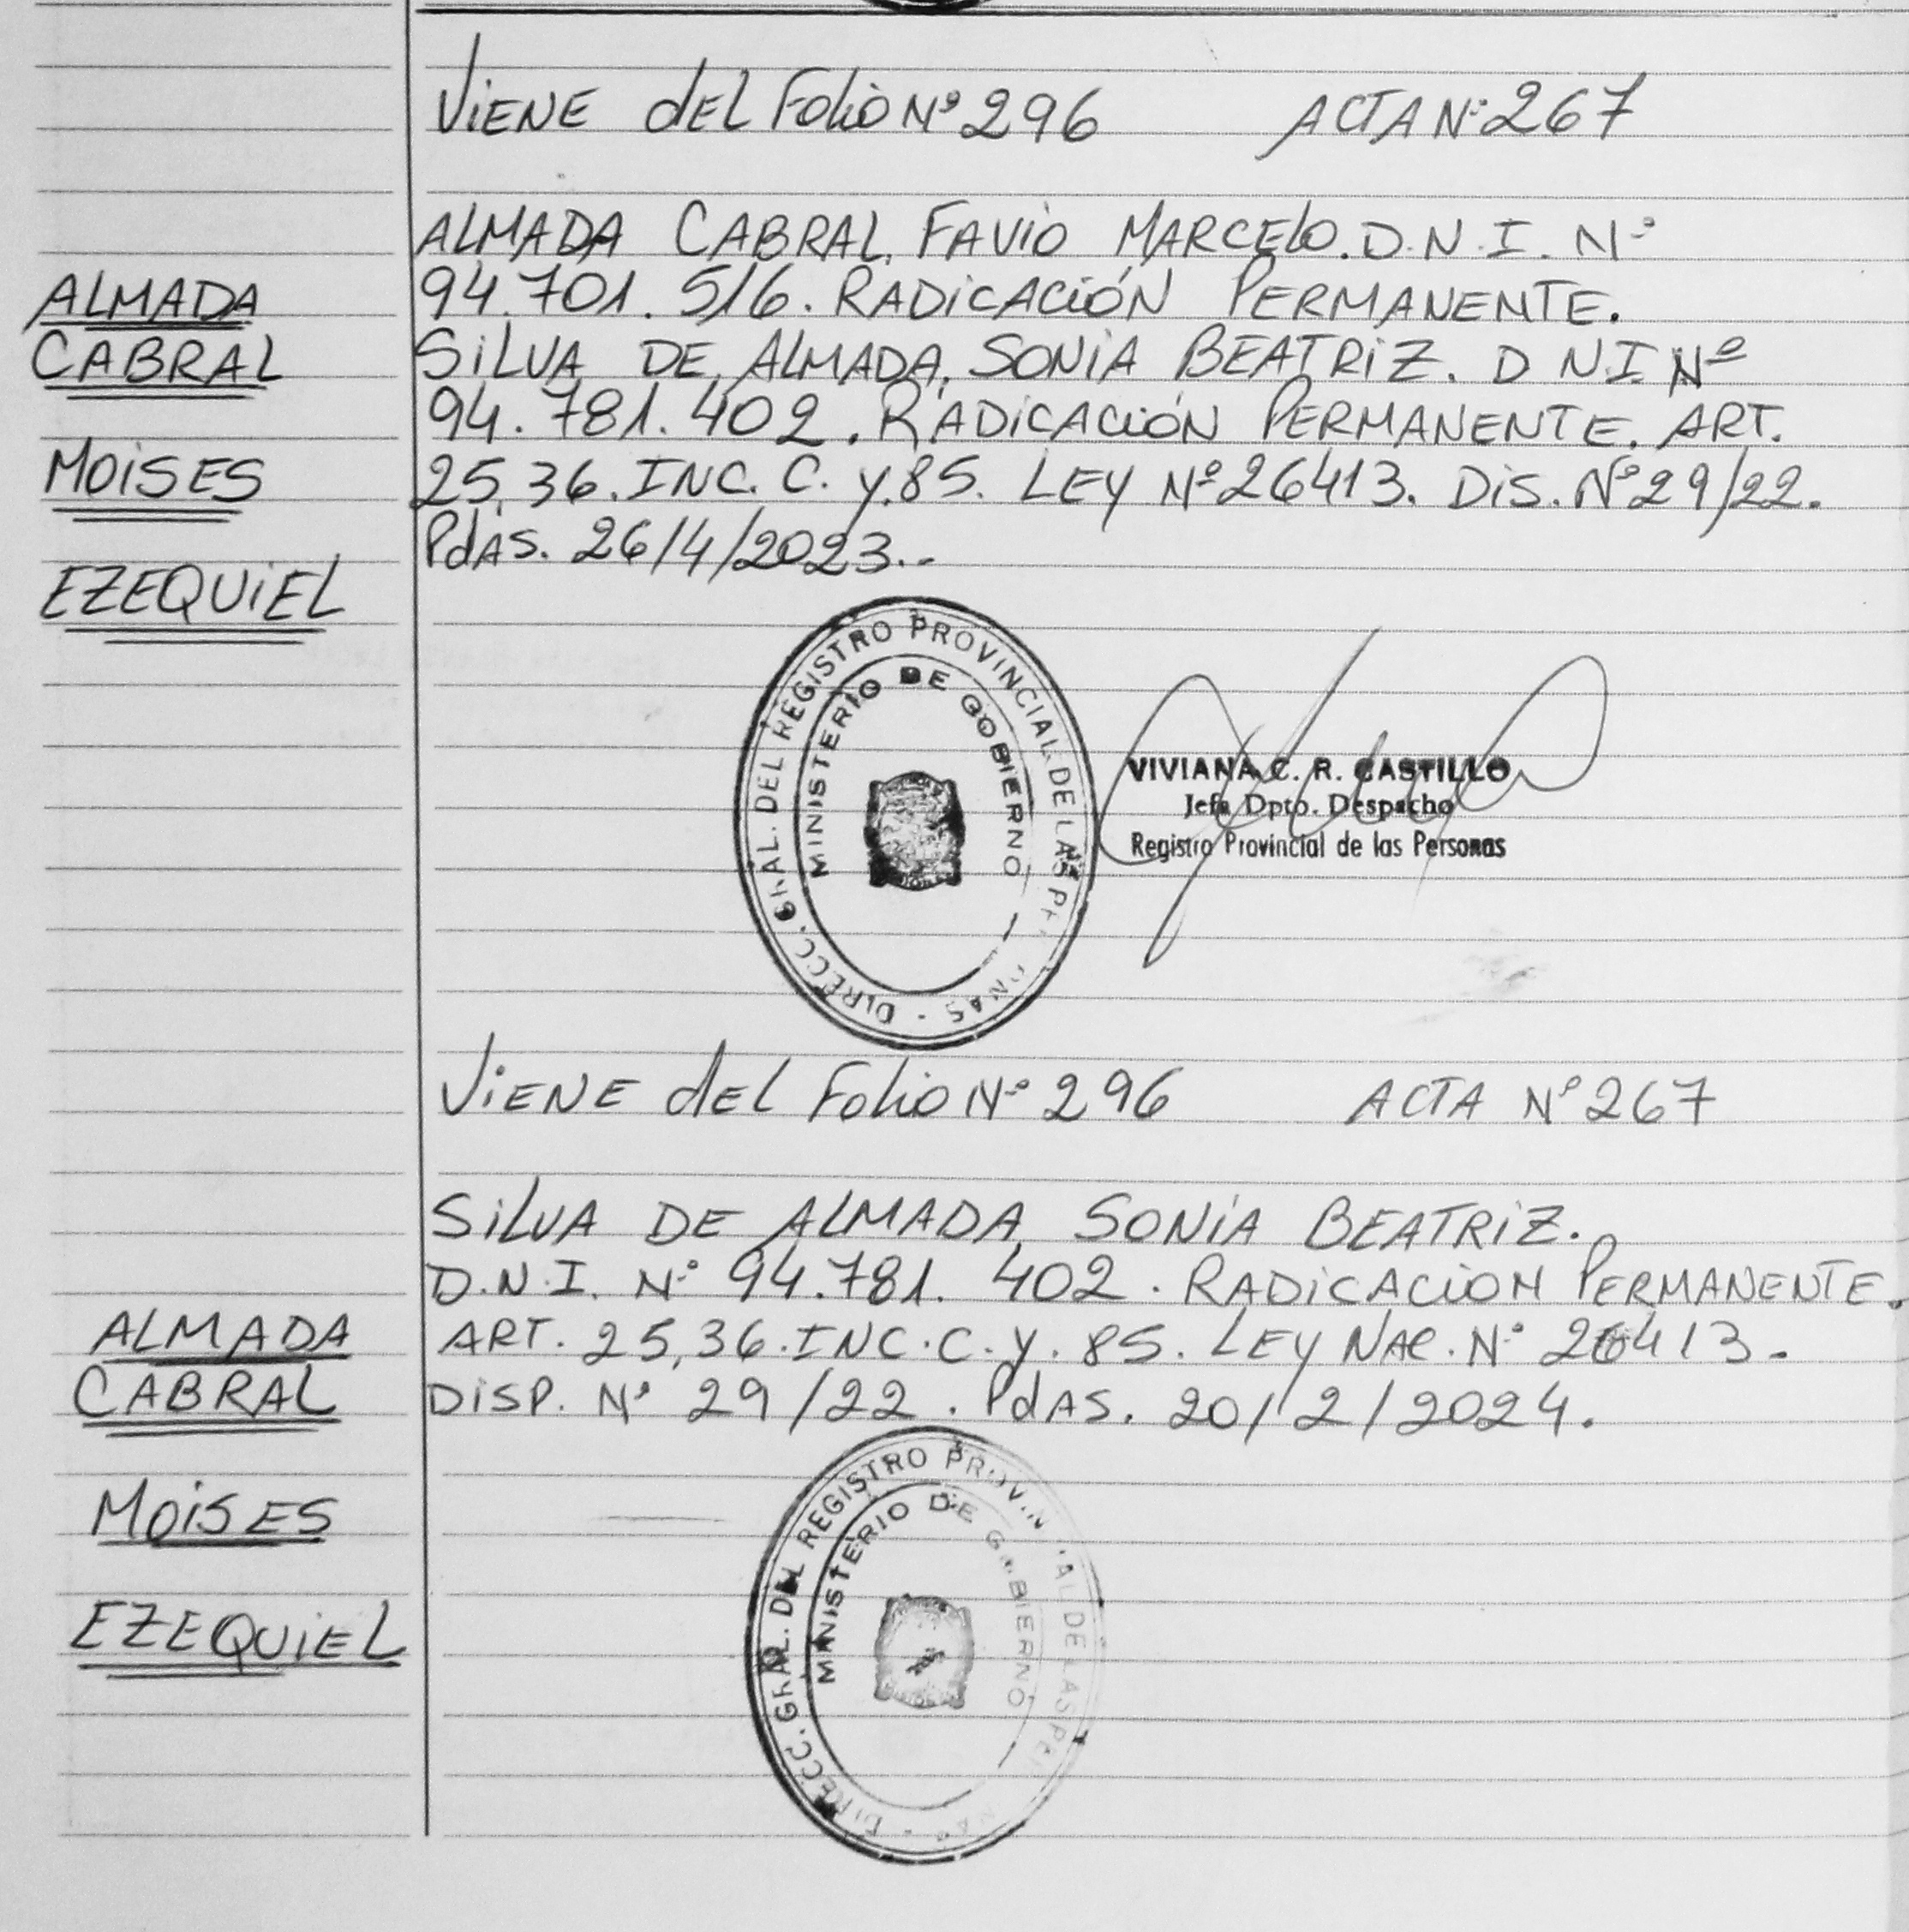 VIENE dEL Folio Nº 296 ACTA Nº 267
ALMADA CABRAL, FAVIO MARCELO. D.N.I. Nº
94.701.516. RADICACIÓN PERMANENTE.
SILVA DE ALMADA, SONIA BEATRIZ. D N.I. Nº
94.781.402. RADICACIÓN PERMANENTE. ART.
25, 36. INC. C. y. 85. LEY Nº 26413. DIS. Nº 29/22.
PdAS. 26/4/2023.-
ALMADA
CABRAL
MOISES
EZEQUIEL
DIRECC. GRAL. DEL REGISTRO PROVINCIAL DE LAS
MINISTERIO DE GOBIERNO
VIVIANA C. R. CASTILLO
Jefa Dpto. Despacho
Registro Provincial de las Personas
VIENE dEL Folio Nº 296 ACTA Nº 267
SILVA DE ALMADA, SONIA BEATRIZ.
D.N.I. Nº 94.781.402. RADICACION PERMANENTE.
ART. 25, 36. INC. C. y. 85. LEY NAC. Nº 26413.
DISP. Nº 29/22. PdAS. 20/2/2024.
ALMADA
CABRAL
MOISES
EZEQUIEL
DIRECC. GRAL. DEL REGISTRO
MINISTERIO DE GOBIERNO